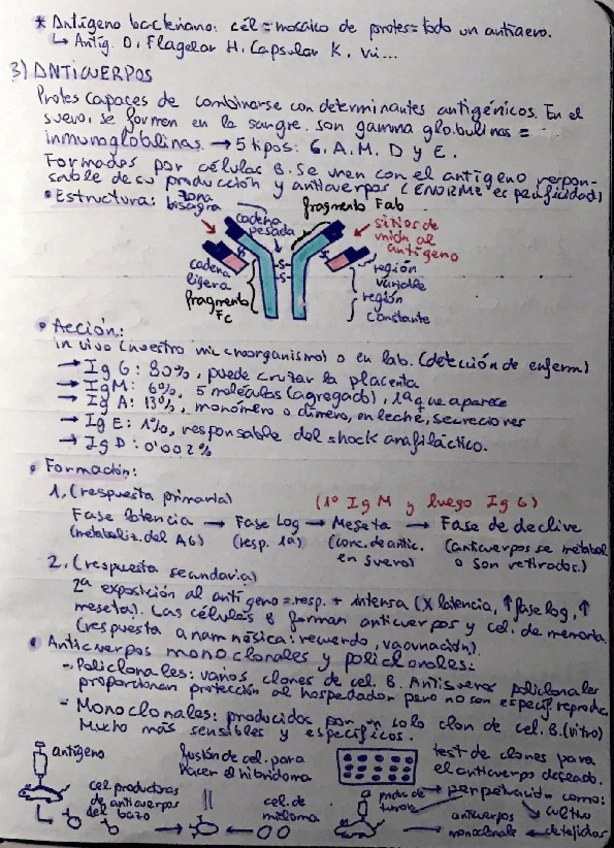 * Antígeno bacteriano: cél = mosaico de protes = todo un antisuero.
↳ Antíg. O, Flagelar H, Capsular K, Vi...
3) ANTICUERPOS
Protes capaces de combinarse con determinantes antigénicos. En el
suero, se forman en la sangre. Son gamma globulinas =
inmunoglobulinas. → 5 tipos: G, A, M, D y E.
Formados por células B. Se unen con el antígeno respon-
sable de su producción y anticuerpos (ENORME especificidad)
• Estructura:
zona bisagra
cadena pesada
fragmento Fab
sitios de unión al antígeno
cadena ligera
fragmento Fc
-S-
-S-
S
S
región variable
región constante
• Acción:
in vivo (nuestro microorganismo) o en lab. (detección de enferm.)
→ Ig G: 80%, puede cruzar la placenta
→ Ig M: 6%, 5 moléculas (agregado), 1ª que aparece
→ Ig A: 13%, monómero o dímero, en leche, secreciones
→ Ig E: 1%, responsable del shock anafiláctico.
→ Ig D: 0'002%
• Formación:
1. (respuesta primaria) (1º Ig M y luego Ig G)
Fase latencia → Fase Log → Meseta → Fase de declive
(metaboliz. del AG) (resp. 1ª) (conc. de antic. en suero) (anticuerpos se metabol o son retirados.)
2. (respuesta secundaria)
2ª exposición al antígeno = resp. + intensa (X latencia, ↑ fase log, ↑
meseta). Las células B forman anticuerpos y cel. de memoria
(respuesta anamnésica: recuerdo, vacunación).
• Anticuerpos monoclonales y policlonales:
- Policlonales: varios clones de cel. B. Antisueros policlonales
proporcionan protección al hospedador pero no son específ. reproduc.
- Monoclonales: producidos por un solo clon de cel. B. (vitro)
Mucho más sensibles y específicos.
antígeno
cel productoras de anticuerpos del bazo
fusión de cel. para hacer el hibridoma
cel. de mieloma
test de clones para el anticuerpo deseado.
→ perpetuación como:
tumor
anticuerpos monoclonale
cultivo de tejidos